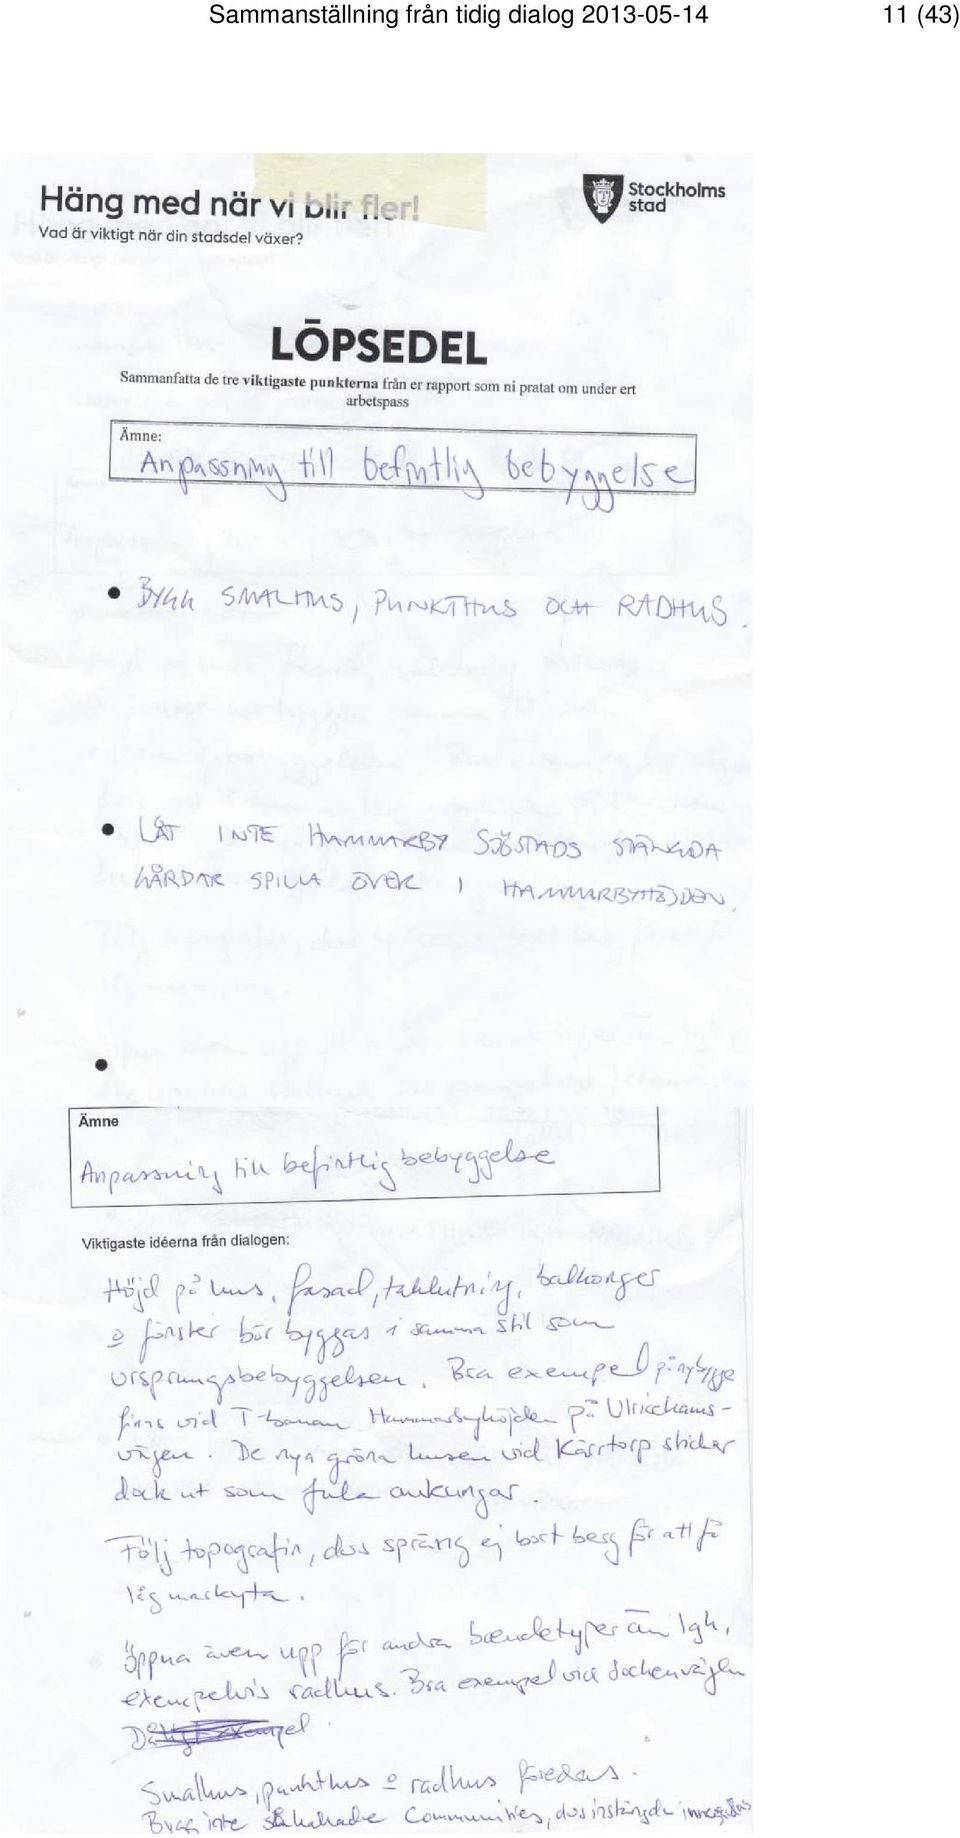 Sammanställning från tidig dialog 2013-05-14 11 (43)
Häng med när vi blir fler!
Vad är viktigt när din stadsdel växer?
Stockholms
stad
LÖPSEDEL
Sammanfatta de tre viktigaste punkterna från er rapport som ni pratat om under ert
arbetspass
Ämne:
Anpassning till befintlig bebyggelse
• BYGG SMALHUS, PUNKTHUS OCH RADHUS.
• LÅT INTE HAMMARBY SJÖSTADS STÄNGDA
GÅRDAR SPILLA ÖVER I HAMMARBYHÖJDEN.
•
Ämne
Anpassning till befintlig bebyggelse
Viktigaste idéerna från dialogen:
Höjd på hus, fasad, taklutning, balkonger
o fönster bör byggas i samma stil som
ursprungsbebyggelsen. Bra exempel på nybygge
finns vid T-banan Hammarbyhöjden på Ulricehams-
vägen. De nya gröna husen vid Kärrtorp sticker
dock ut som fula ankungar.
Följ topografin, dvs spräng ej bort berg för att få
låg markyta.
Öppna även upp för andra boendetyper än lgh,
exempelvis radhus. Bra exempel vid Sockenvägen
Smalhus, punkthus o radhus föredras.
Bygg inte såkallade Communities, dvs instängda innergårdar